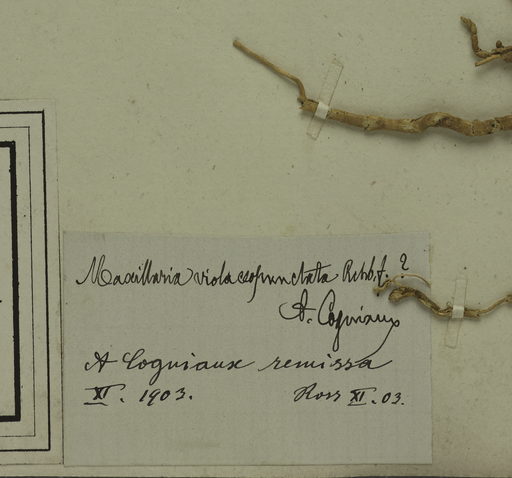 Maxillaria violaceopunctata Rchb. f. ?
A. Cogniaux
A Cogniaux remissa
XI. 1903. Ross XI. 03.